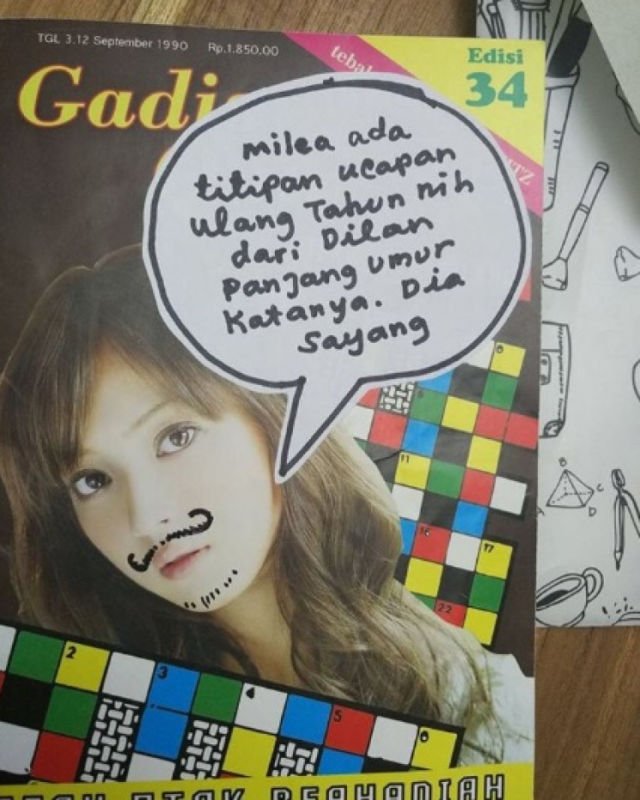 TGL 3.12 September 1990 Rp.1.850.00
Edisi
34
milea ada
titipan ucapan
ulang Tahun nih
dari Dilan
panjang umur
Katanya. Dia
Sayang
8
11
16
17
22
B
C
A
D
2
3
4
5
6